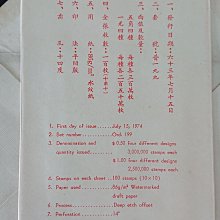 一、發行日期：六十三年七月十五日
二、
三、面值及數量：
五角四種　每種各三百萬枚
一元四種　每種各二百五十萬枚
四、全張枚數：一百枚（十×十）
五、用
六、印　法：平版
七、齒　度：十四度
1. First day of issue July 15, 1974
2. Set number Ord. 199
3. Denomination and quantity issued $ 0.50 Four different designs
3,000,000 stamps each
$ 1.00 Four different designs
2,500,000 stamps each
4. Stamps on each sheet 100 stamps (10×10)
5. Paper used Watermarked
drafts paper
6. Process Deep etch offset
7. Perforation 14°